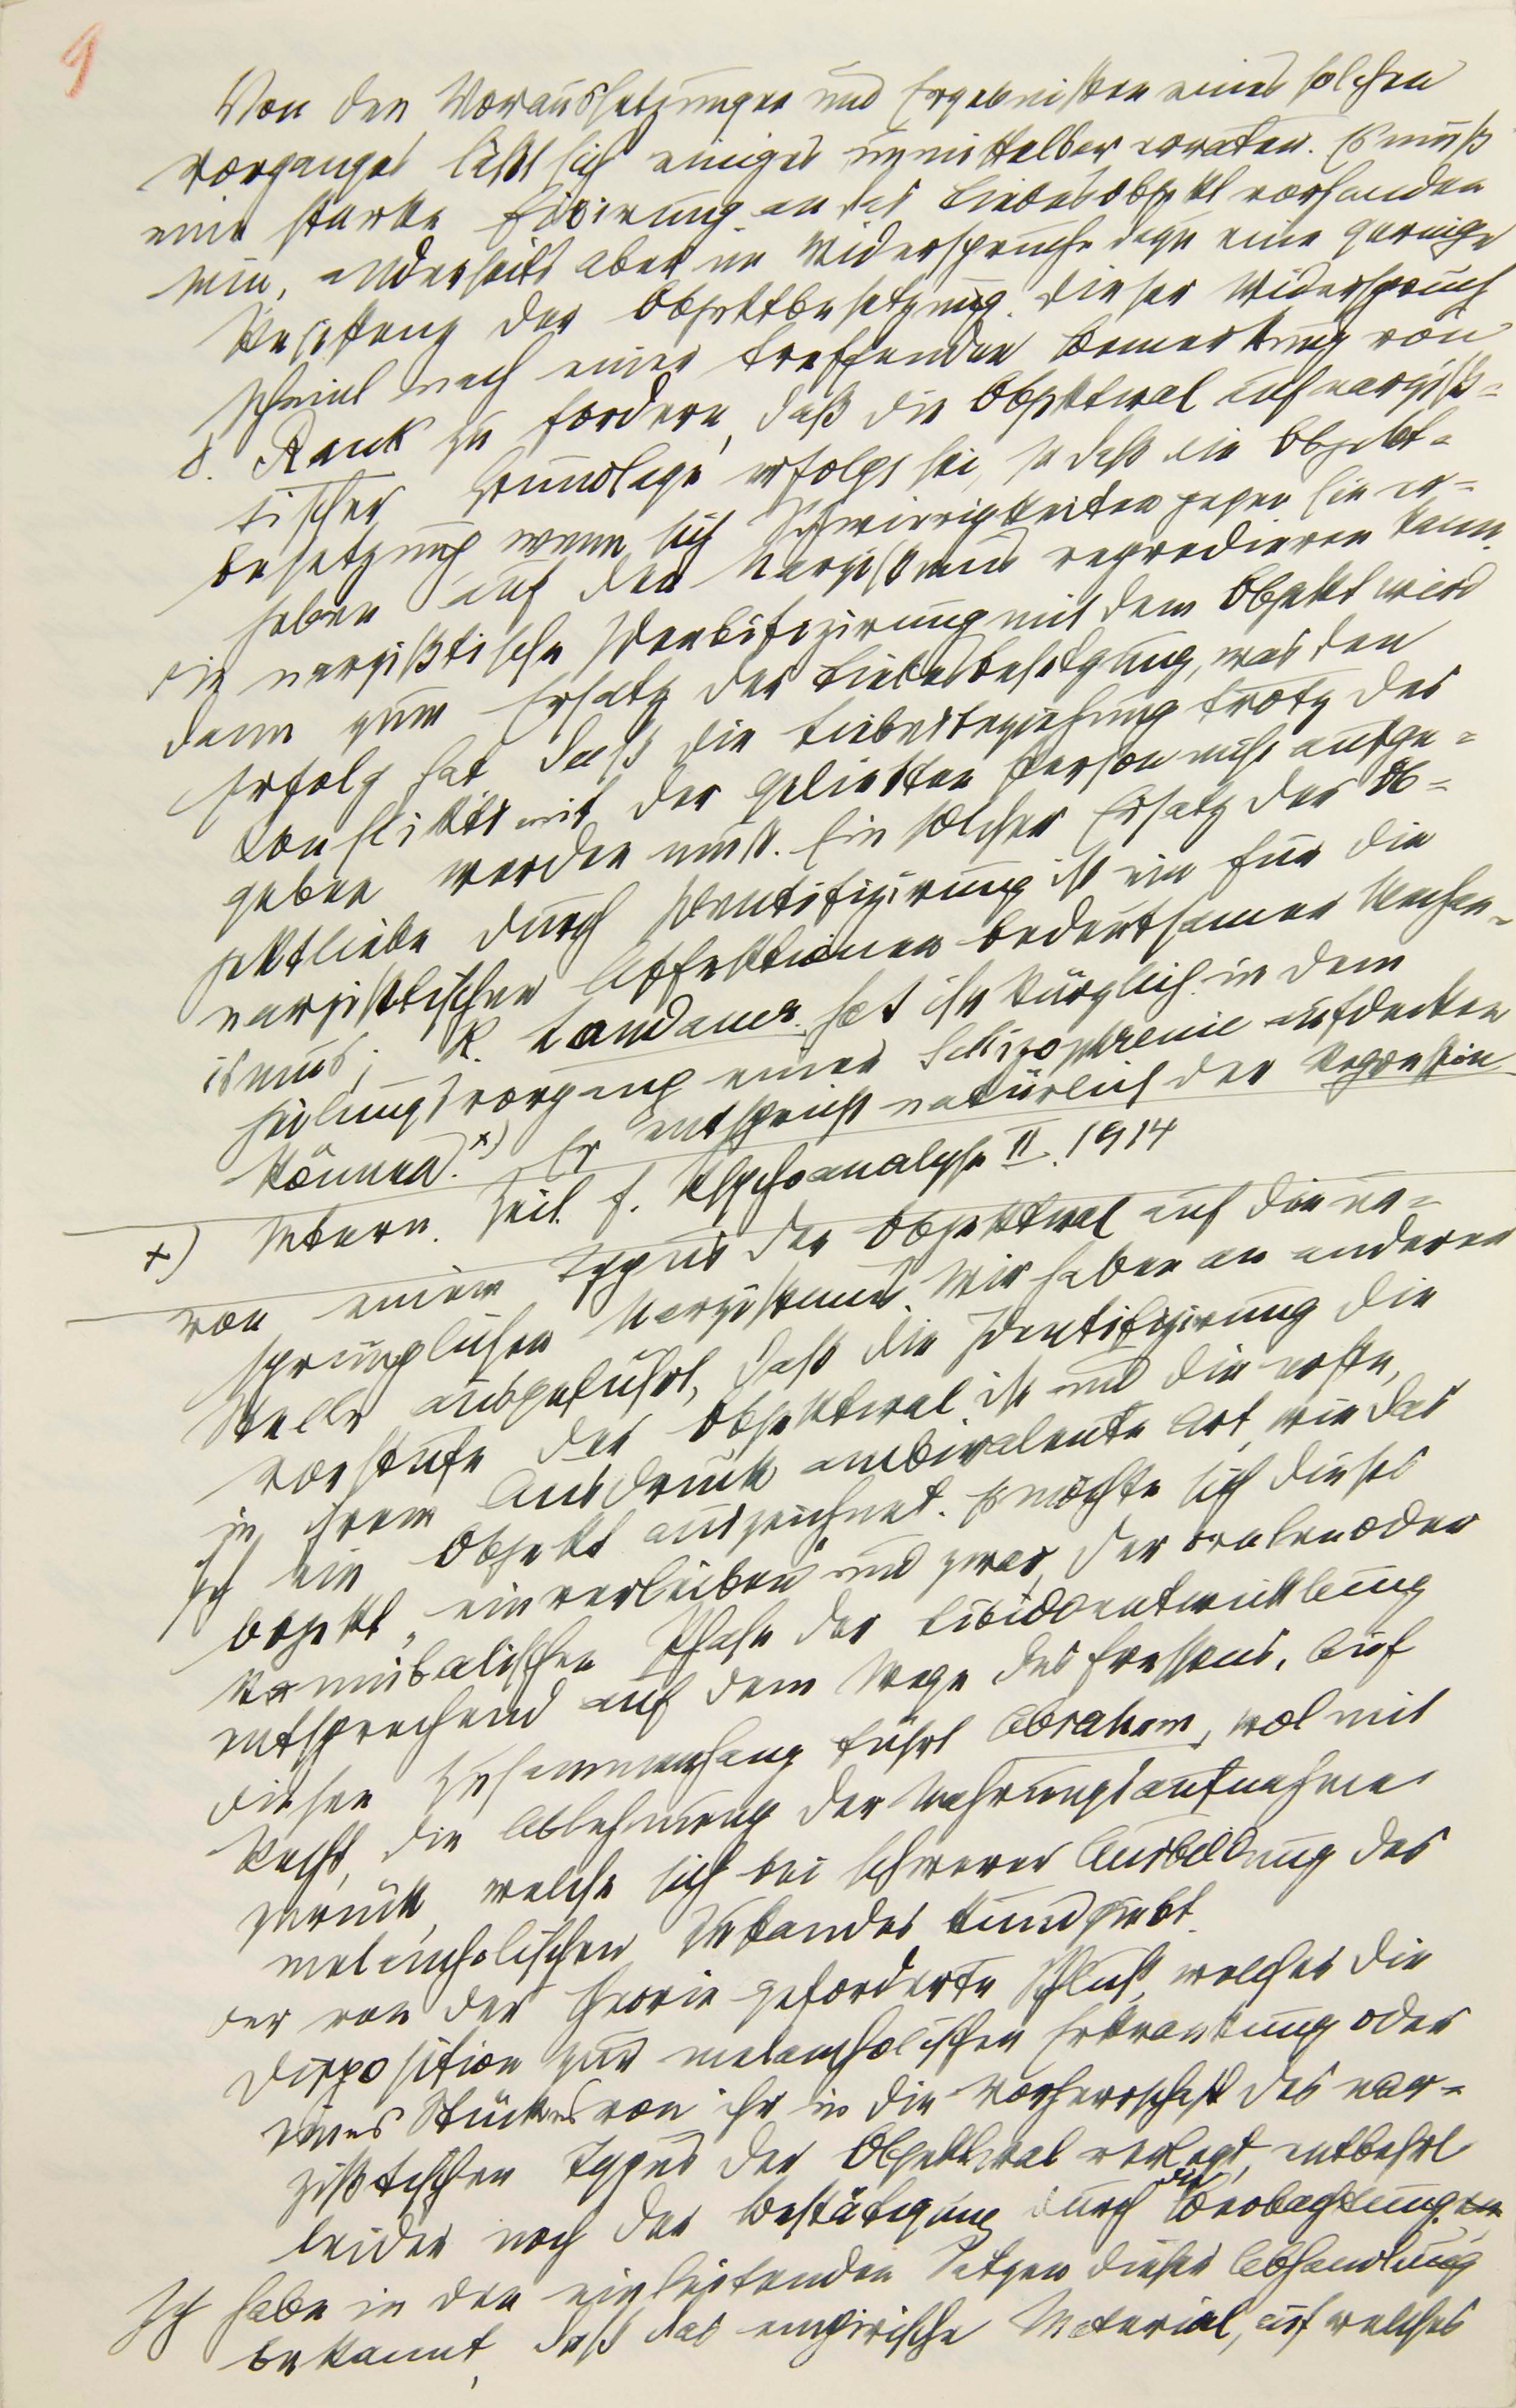 9
Von den Voraussetzungen und Ergebnissen eines solchen
Vorganges läßt sich einiges unmittelbar erraten. Es muß
eine starke Fixirung an das Liebesobjekt vorhanden
sein, anderseits aber im Widerspruche dazu eine geringe
Resistenz der Objektbesetzung. Dieser Widerspruch
scheint nach einer treffenden Bemerkung von
O. Rank zu fordern, daß die Objektwal auf narziß=
tischer Grundlage erfolgt sei, so daß die Objekt=
besetzung wenn sich Schwierigkeiten gegen sie er=
heben auf den Narzißmus regredieren kann.
Die narzißtische Identifizirung mit dem Objekt wird
dann zum Ersatz der Liebesbesetzung, was den
Erfolg hat, daß die Liebesbeziehung trotz des
Konflikts mit der geliebten Person nicht aufge=
geben werden muß. Ein solcher Ersatz der Ob=
jektliebe durch Identifizirung ist ein für die
narzißtischen Affektionen bedeutsamer Mechan=
ismus; K. Landauer hat ihn kürzlich in dem
Heilungsvorgang einer Schizophrenie aufdecken
können.x) Er entspricht natürlich der Regression
x) Intern. Zeit. f. Psychoanalyse II. 1914
von einem Typus der Objektwal auf den ur=
sprünglichen Narzißmus. Wir haben an anderer
Stelle ausgeführt, daß die Identifizirung die
Vorstufe der Objektwal ist und die erste,
in ihrem Ausdruck ambivalente Art, wie das
Ich ein Objekt auszeichnet. Es möchte sich dieses
Objekt „einverleiben“ und zwar, der oralen oder
kannibalischen Phase der Libidoentwicklung
entsprechend auf dem Wege des Fressens. Auf
diesen Zusammenhang führt Abraham, wol mit
Recht, die Ablehnung der Nahrungsaufnahme
zurück, welche sich bei schwerer Ausbildung des
melancholischen Zustandes kundgiebt.
Der von der Theorie geforderte Schluß, welcher die
Disposition zur melancholischen Erkrankung oder
eines Stückes von ihr in die Vorherrschaft des nar=
zißtischen Typus der Objektwal verlegt, entbehrt
leider noch der Bestätigung durch die Beobachtung.
Ich habe in den einleitenden Sätzen dieser Abhandlung
bekannt, daß das empirische Material, auf welches